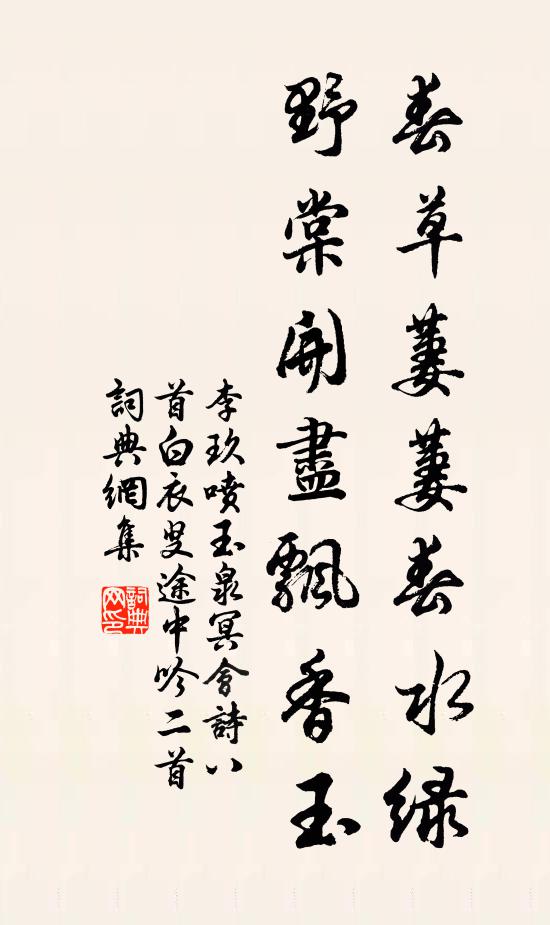 春草萋萋春水綠
野棠開盡飄香玉
李玖噴玉泉冥會詩八
首白衣叟途中吟二首
詞典網集
詞典網印